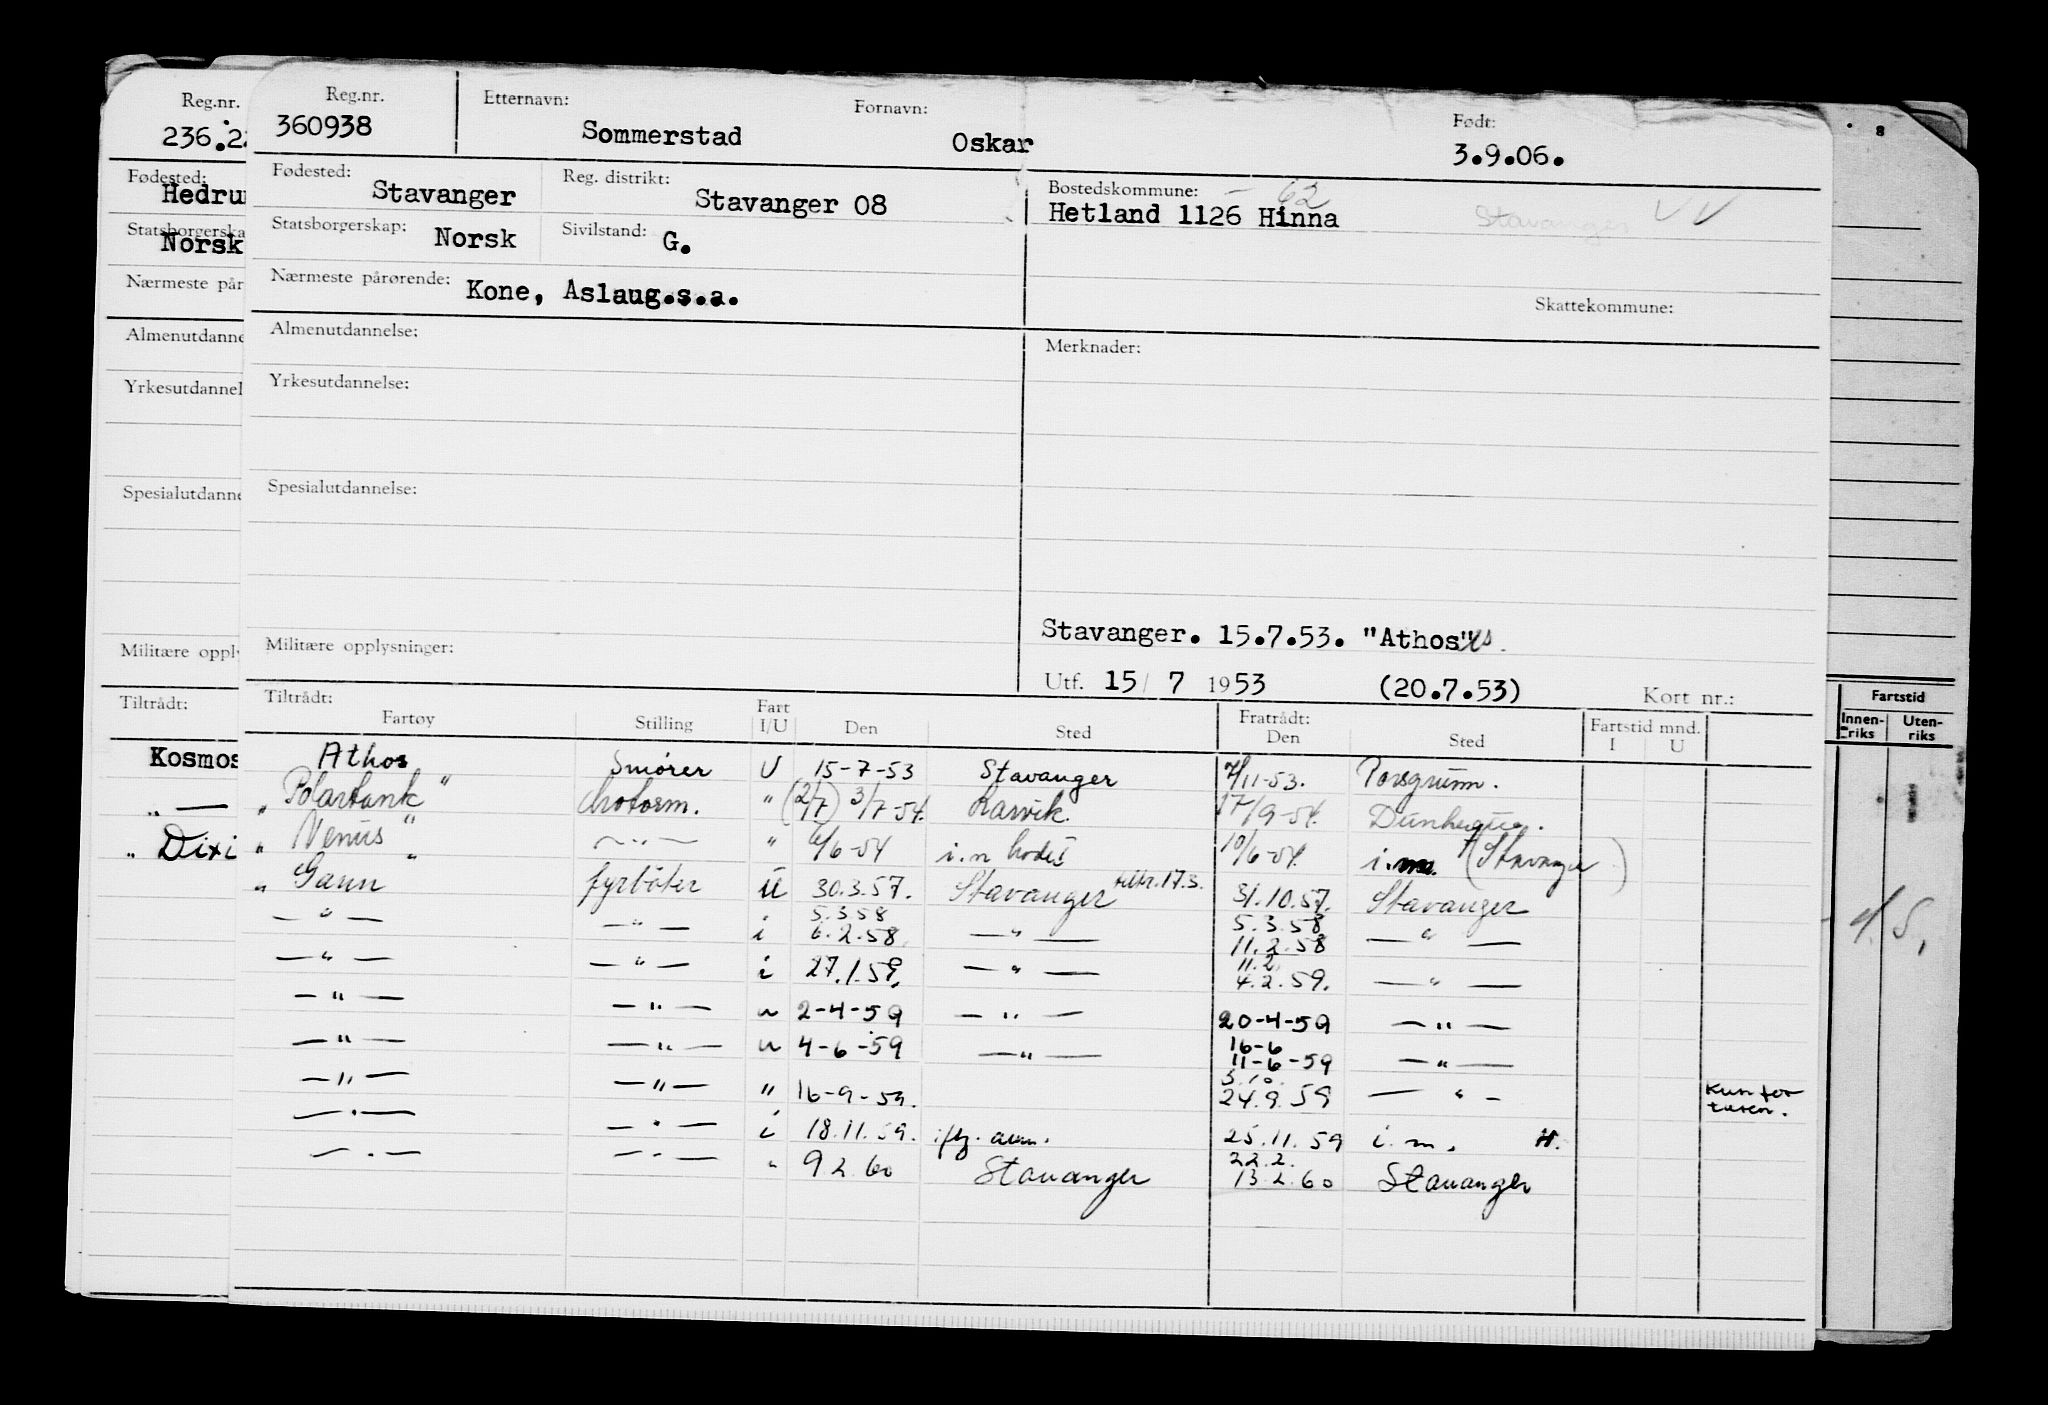 Reg.nr. Reg.nr. Etternavn: Fornavn: Født:
236.22 360938 Sommerstad Oskar 3.9.06.
Fødested: Fødested: Reg. distrikt: Bostedskommune: - 62
Hedru Stavanger Stavanger 08 Hetland 1126 Hinna Stavanger V V
Statsborgerska Statsborgerskap: Sivilstand:
Norsk Norsk G.
Nærmeste pår Nærmeste pårørende: Kone, Aslaug.s.a. Skattekommune:
Almenutdanne Almenutdannelse: Merknader:
Yrkesutdannel Yrkesutdannelse:
Spesialutdanne Spesialutdannelse:
Stavanger. 15.7.53. "Athos"
Militære opply Militære opplysninger: Utf. 15/ 7 1953 (20.7.53) Kort nr.:
Tiltrådt: Tiltrådt: Fratrådt: Fartstid mnd. Fartstid
Fartøy Stilling Fart I/U Den Sted Den Sted I U Innen-riks Uten-riks
Kosmos Athos Smører U 15-7-53 Stavanger 7/11-53. Porsgrunn.
„ — „ Polartank " Motorm. " (2/7) 3/7-54. Larvik. 17/9-54.
„ Dixi „ Venus " — " — " 6/6-54 i.n 10/6-54. i.m. (Stavanger)
„ Gann " fyrbøter u 30.3.57. Stavanger tiltr.17.3. 31.10.57. Stavanger
— " — — " — i 5.3.58 6.2.58. — " — 5.3.58 11.2.58 — " —
— " — — " — i 27.1.59. — " — 11.2. 4.2.59. — " —
— " — — " — u 2-4-59 — " — 20-4-59 — " —
— " — — " — u 4-6-59 — " — 16-6 11-6-59 — " —
— " — — " — " 16-9-59. 3.10. 24.9.59 — " — Kun for turen.
— " — — " — i 18.11.59. 25.11.59 i.m. H.
— " — — " — " 9 2 60 Stavanger 22.2. 13.2.60 Stavanger